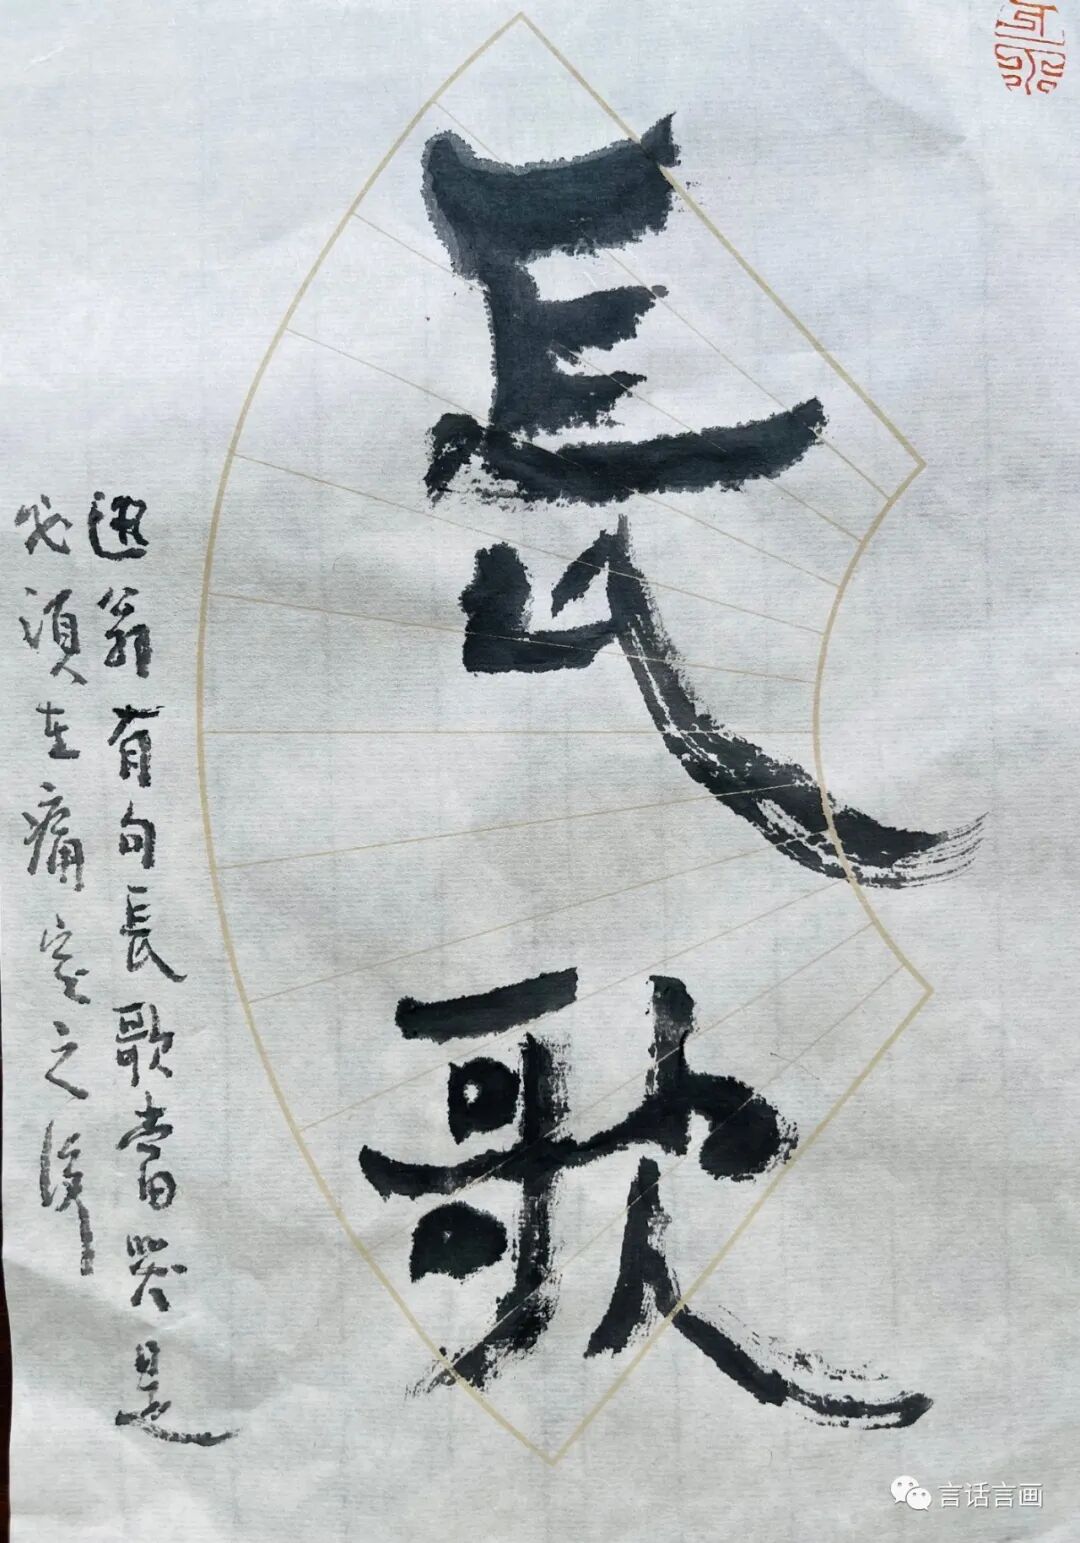 長歌
迅翁有句長歌當哭是
必須在痛定之後
言话言画